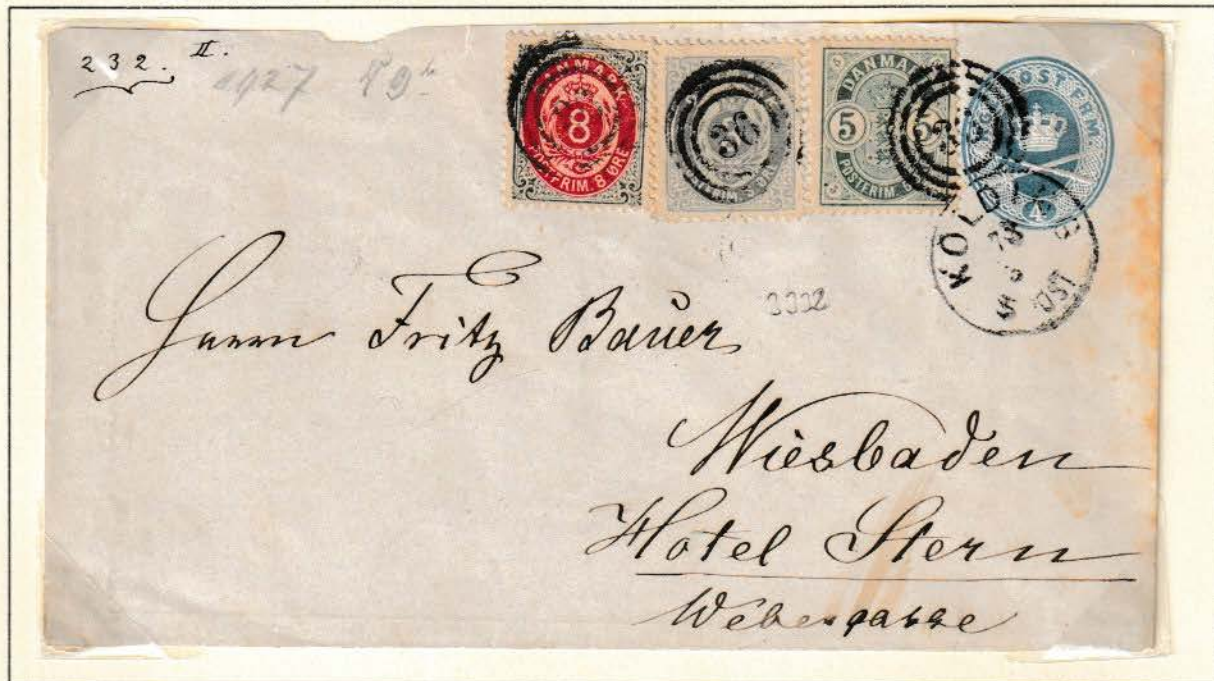 232. II.
1927
DANMARK
8
POSTFRIM. 8 ØRE
36
DANMARK
5 5
POSTFRIM. 5
POSTFRIM
4
KOLDING
3332
Herrn Fritz Bauer
Wiesbaden
Hotel Stern
Webergasse